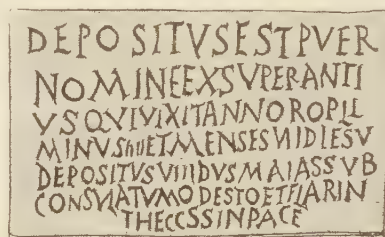 DEPOSITVSESTPVER
NOMINEEXSVPERANTI
VSQVIVIXITANNOROPLL
MINVS
DEPOSITVSVIIIIDVSMAIASSVB
CONSVLATVMODESTOETFLARIN
THECCSSINPACE